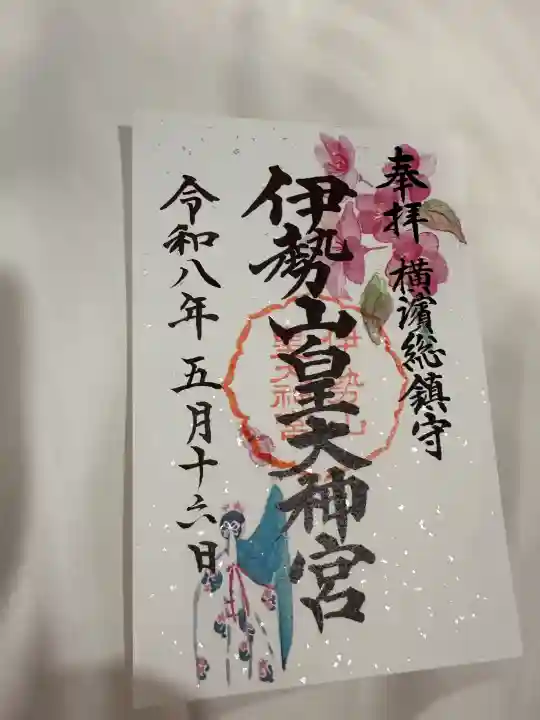 奉拝 横濱総鎮守
伊勢山皇大神宮
伊勢山
皇大神宮
令和八年 五月十六日